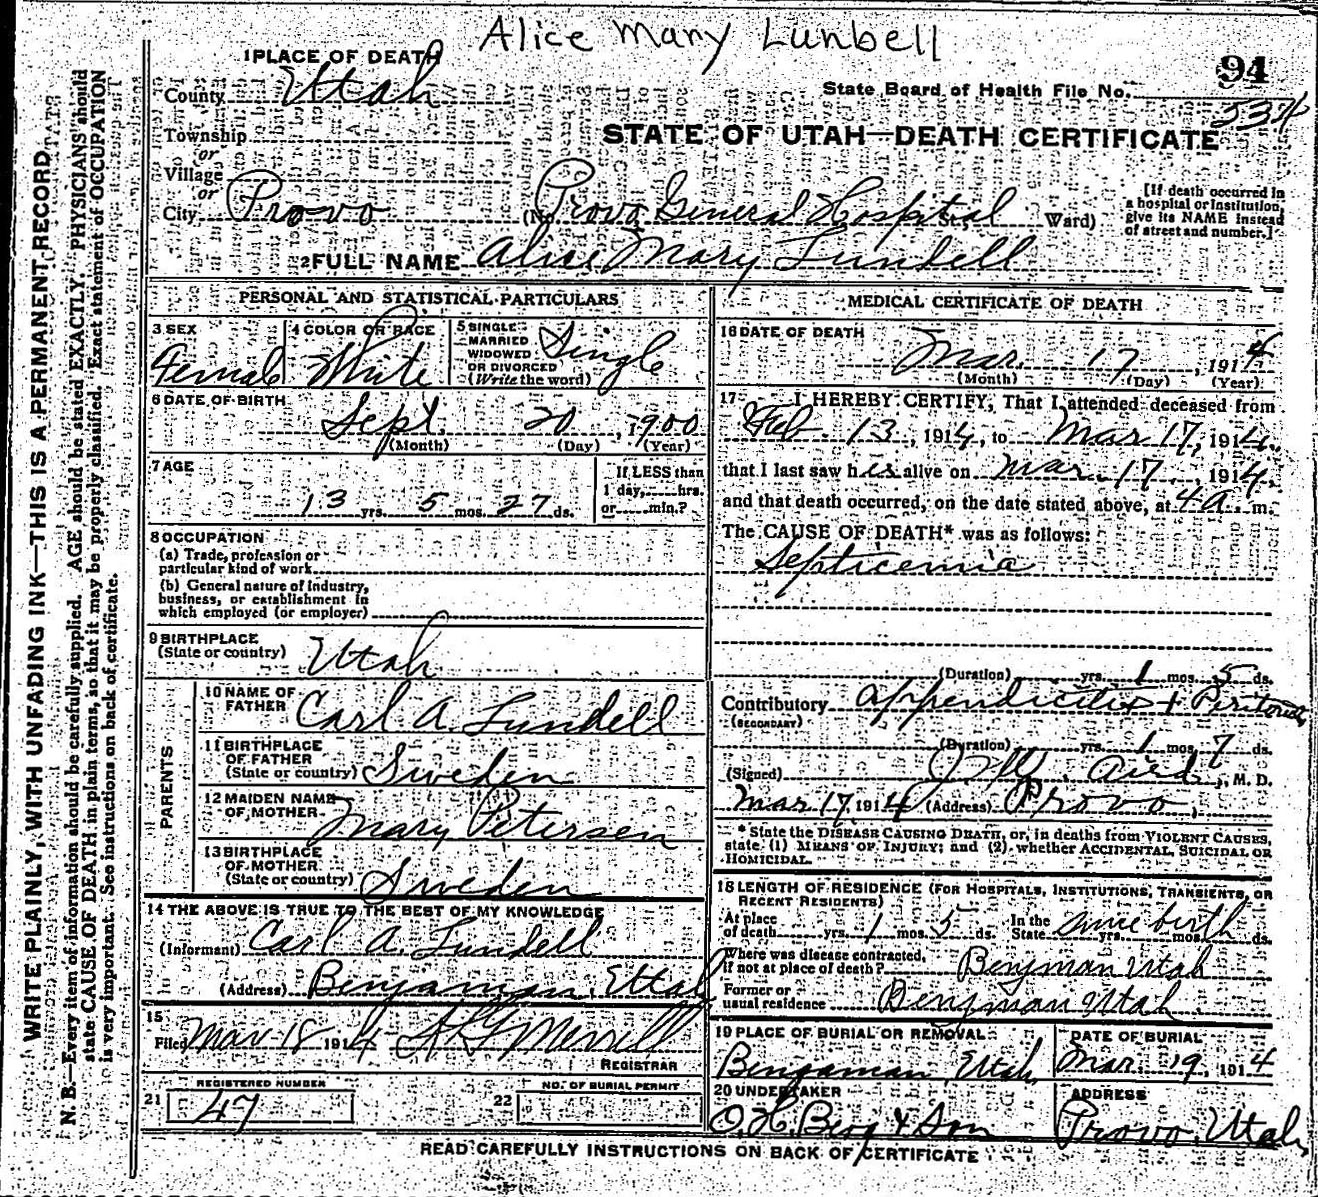 Alice Mary Lunbell
94
1 PLACE OF DEATH
County Utah
State Board of Health File No.
Township
or
STATE OF UTAH—DEATH CERTIFICATE
Village
or
City Provo (No. Provo General Hospital St., Ward)
[If death occurred in
a hospital or institution,
give its NAME instead
of street and number.]
2 FULL NAME Alice Mary Lundell
PERSONAL AND STATISTICAL PARTICULARS
3 SEX
Female
4 COLOR OR RACE
White
5 SINGLE
MARRIED
WIDOWED
OR DIVORCED
(Write the word)
Single
6 DATE OF BIRTH
Sept. 20, 1900
(Month) (Day) (Year)
7 AGE
13 yrs. 5 mos. 27 ds.
If LESS than
1 day, hrs.
or min.?
8 OCCUPATION
(a) Trade, profession or
particular kind of work
(b) General nature of industry,
business, or establishment in
which employed (or employer)
9 BIRTHPLACE
(State or country)
Utah
PARENTS
10 NAME OF
FATHER
Carl A. Lundell
11 BIRTHPLACE
OF FATHER
(State or country) Sweden
12 MAIDEN NAME
OF MOTHER
Mary Petersen
13 BIRTHPLACE
OF MOTHER
(State or country) Sweden
14 THE ABOVE IS TRUE TO THE BEST OF MY KNOWLEDGE
(Informant) Carl A. Lundell
(Address) Benjaman, Utah
15
Filed Mar 18 1914 Merrill
REGISTRAR
REGISTERED NUMBER
21 47
NO. OF BURIAL PERMIT
22
MEDICAL CERTIFICATE OF DEATH
16 DATE OF DEATH
Mar. 17, 1914
(Month) (Day) (Year)
17 I HEREBY CERTIFY, That I attended deceased from
Feb. 13, 1914, to Mar 17, 1914,
that I last saw her alive on Mar. 17 1914,
and that death occurred, on the date stated above, at 4 a. m.
The CAUSE OF DEATH* was as follows:
Septicemia
(Duration) yrs. 1 mos. 5 ds.
Contributory appendicitis + Peritonitis
(SECONDARY)
(Duration) yrs. 1 mos. 7 ds.
(Signed) Aird, M. D.
Mar 17, 1914 (Address) Provo,
* State the DISEASE CAUSING DEATH, or, in deaths from VIOLENT CAUSES,
state (1) MEANS OF INJURY; and (2) whether ACCIDENTAL, SUICIDAL OR
HOMICIDAL.
18 LENGTH OF RESIDENCE (FOR HOSPITALS, INSTITUTIONS, TRANSIENTS, OR
RECENT RESIDENTS)
At place
of death yrs. 1 mos. 5 ds. In the
State since birth yrs. mos. ds.
Where was disease contracted,
if not at place of death? Benjman Utah
Former or
usual residence Benjman Utah
19 PLACE OF BURIAL OR REMOVAL
Benjaman, Utah,
DATE OF BURIAL
Mar. 19, 1914
20 UNDERTAKER
O. H. Berg & Son
ADDRESS
Provo, Utah,
READ CAREFULLY INSTRUCTIONS ON BACK OF CERTIFICATE
WRITE PLAINLY, WITH UNFADING INK—THIS IS A PERMANENT RECORD
N. B.—Every item of information should be carefully supplied. AGE should be stated EXACTLY. PHYSICIANS should
state CAUSE OF DEATH in plain terms, so that it may be properly classified. Exact statement of OCCUPATION
is very important. See instructions on back of certificate.